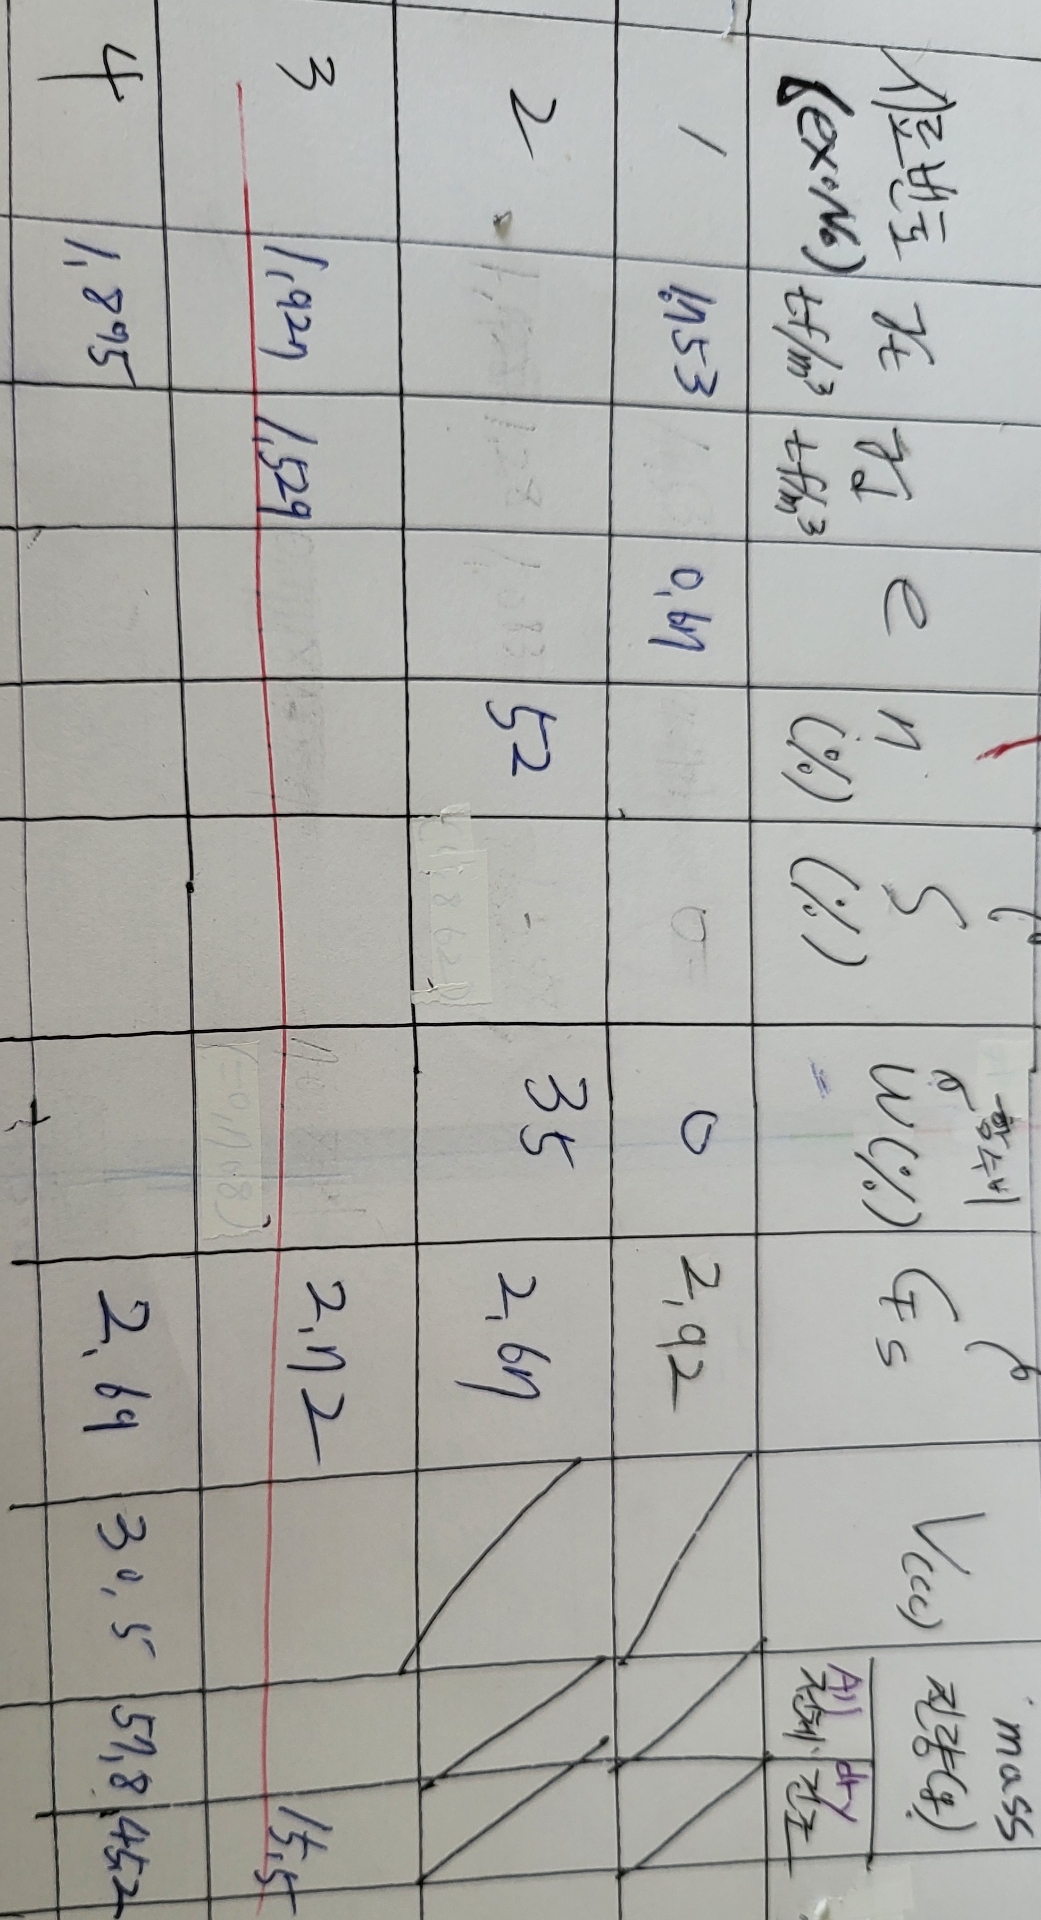 시료번호 γt γd e n S 함수비 w(%) Gs V(cc) mass 질량(g)
(ex.No) tf/m³ tf/m³ (%) (%) All 전체 dry 건조
1 1,753 0,67 0 2,92
2 52 35 2,67
3 1,927 1,529 2,72 15,5
4 1,895 2,69 30,5 57,8 45,2